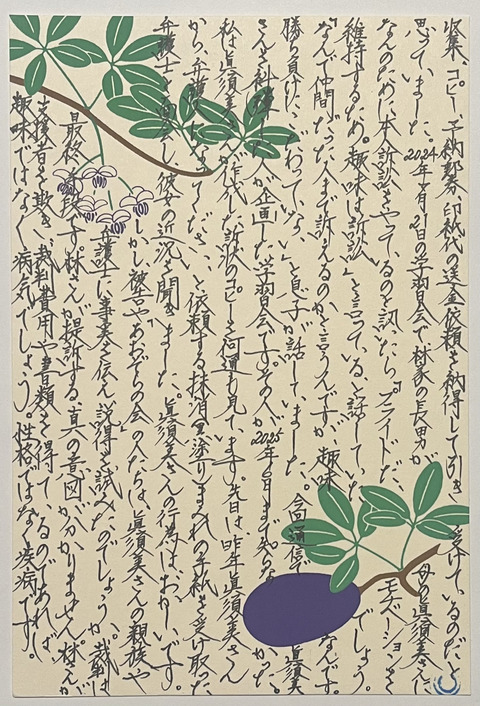 収集、コピー、予納郵券、印紙代の送金依頼を納得して引き受けているのだと
思っていました。2024年 月21日の学習会で林家の長男が「母の眞須美さんに
なんのために本訴訟をやっているのを訊いたら『プライドだ、モチベーションを
維持するため。趣味は訴訟』と言っている」と話していたでしょう。
「なんで仲間だった人まで訴えるのかを言うんですが、趣味なんです。
勝ち負けにこだわってない」と息子が話していました。今回通信で眞須美
さんを した人が企画した学習会です。その人が2025年 月まで知らな
私は眞須美さんが作成した訴状のコピーを何通も見ています。先日は昨年眞須美さん
から、弁護 ください」と依頼する抹消(黒塗り)まみれの手紙を受け取った
弁護士と し、彼女の近況を聞きました。眞須美さんの行為はおかしいです。
しかし被害やあおぞらの会の人たちは、眞須美さんの親族や
弁護士に事実を伝え、説得を試みたのでしょうか。裁判は
最終 段です。林さんが提訴する真の意図が分かりません。林さんが
支援者を欺き、裁判費用や書類を得ているのであれば、
趣味ではなく病気でしょう。性格ではなく疾病です。